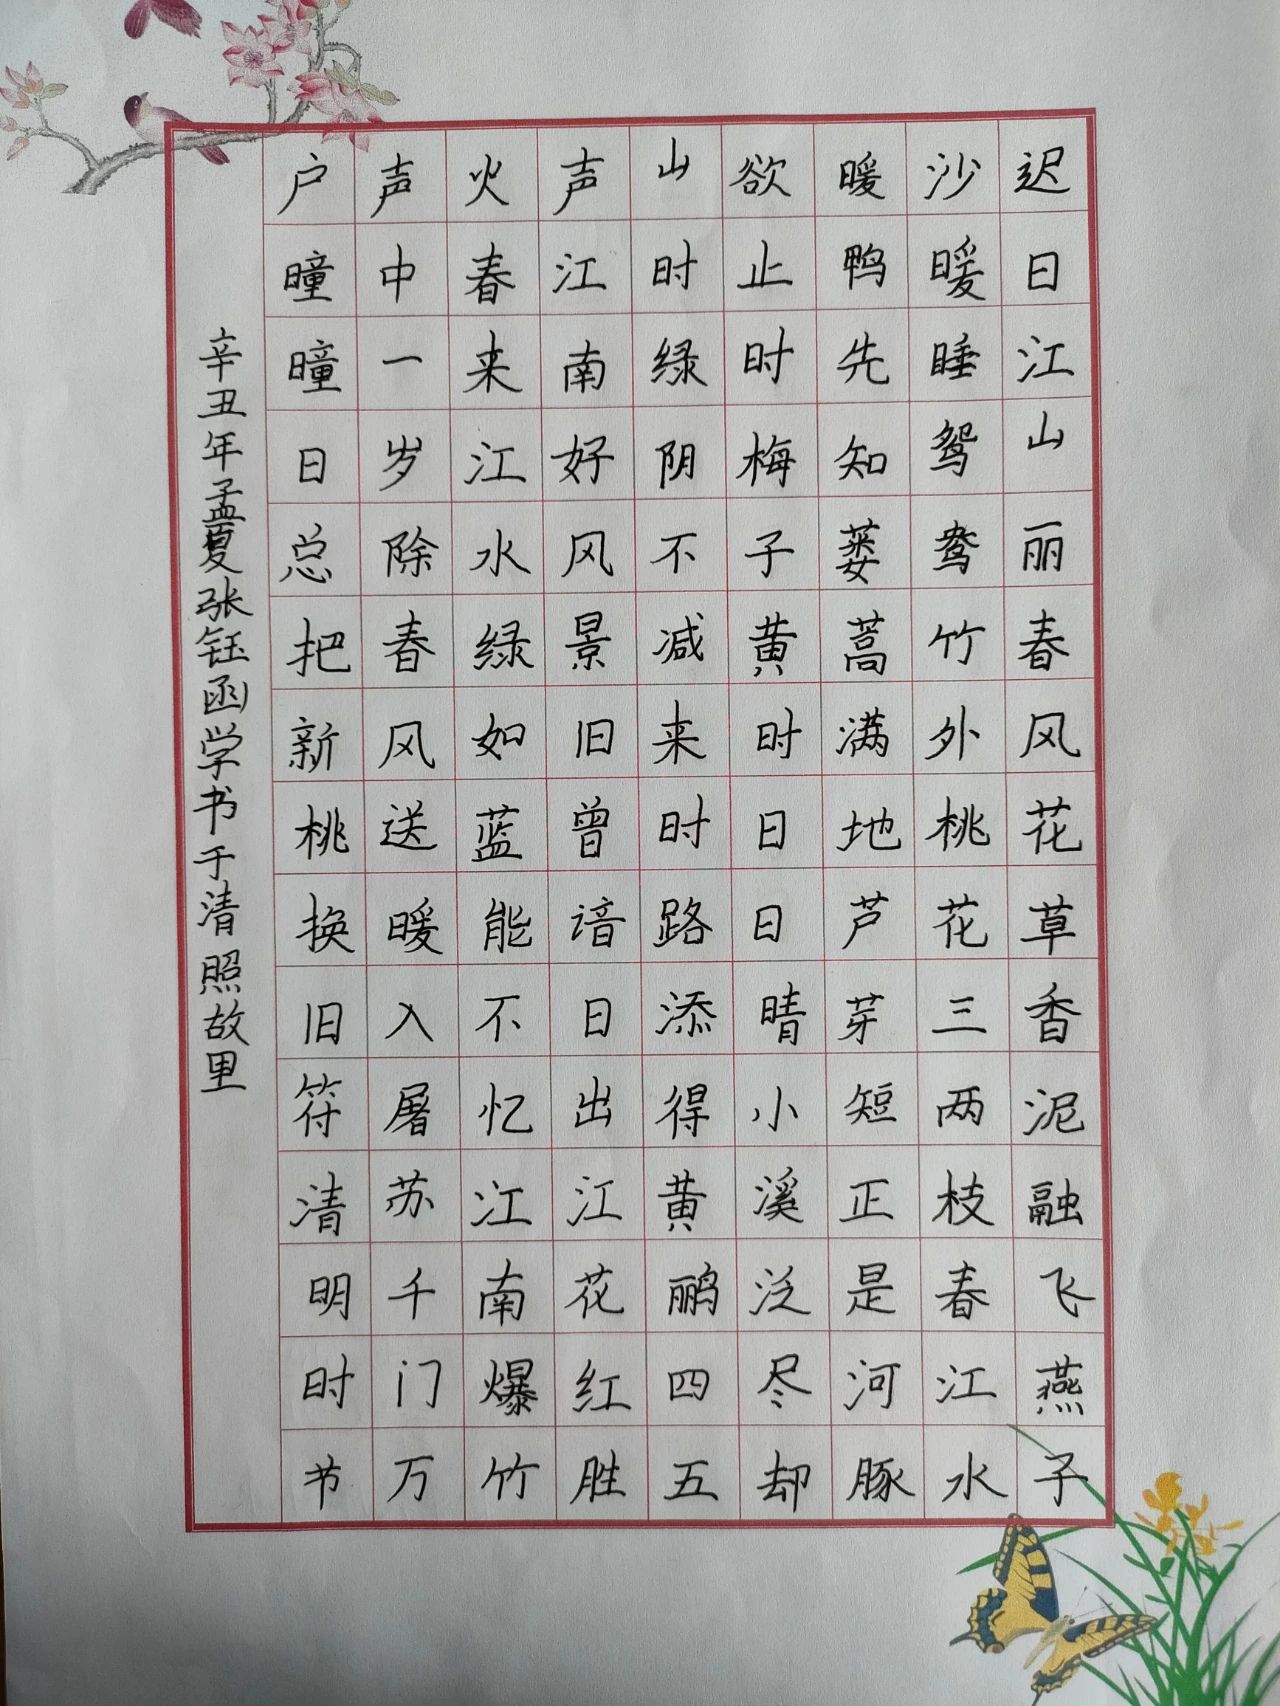 迟日江山丽春风花草香泥融飞燕子
沙暖睡鸳鸯竹外桃花三两枝春江水
暖鸭先知蒌蒿满地芦芽短正是河豚
欲止时梅子黄时日日晴小溪泛尽却
山时绿阴不减来时路添得黄鹂四五
声江南好风景旧曾谙日出江花红胜
火春来江水绿如蓝能不忆江南爆竹
声中一岁除春风送暖入屠苏千门万
户曈曈日总把新桃换旧符清明时节
辛丑年孟夏张钰函学书于清照故里